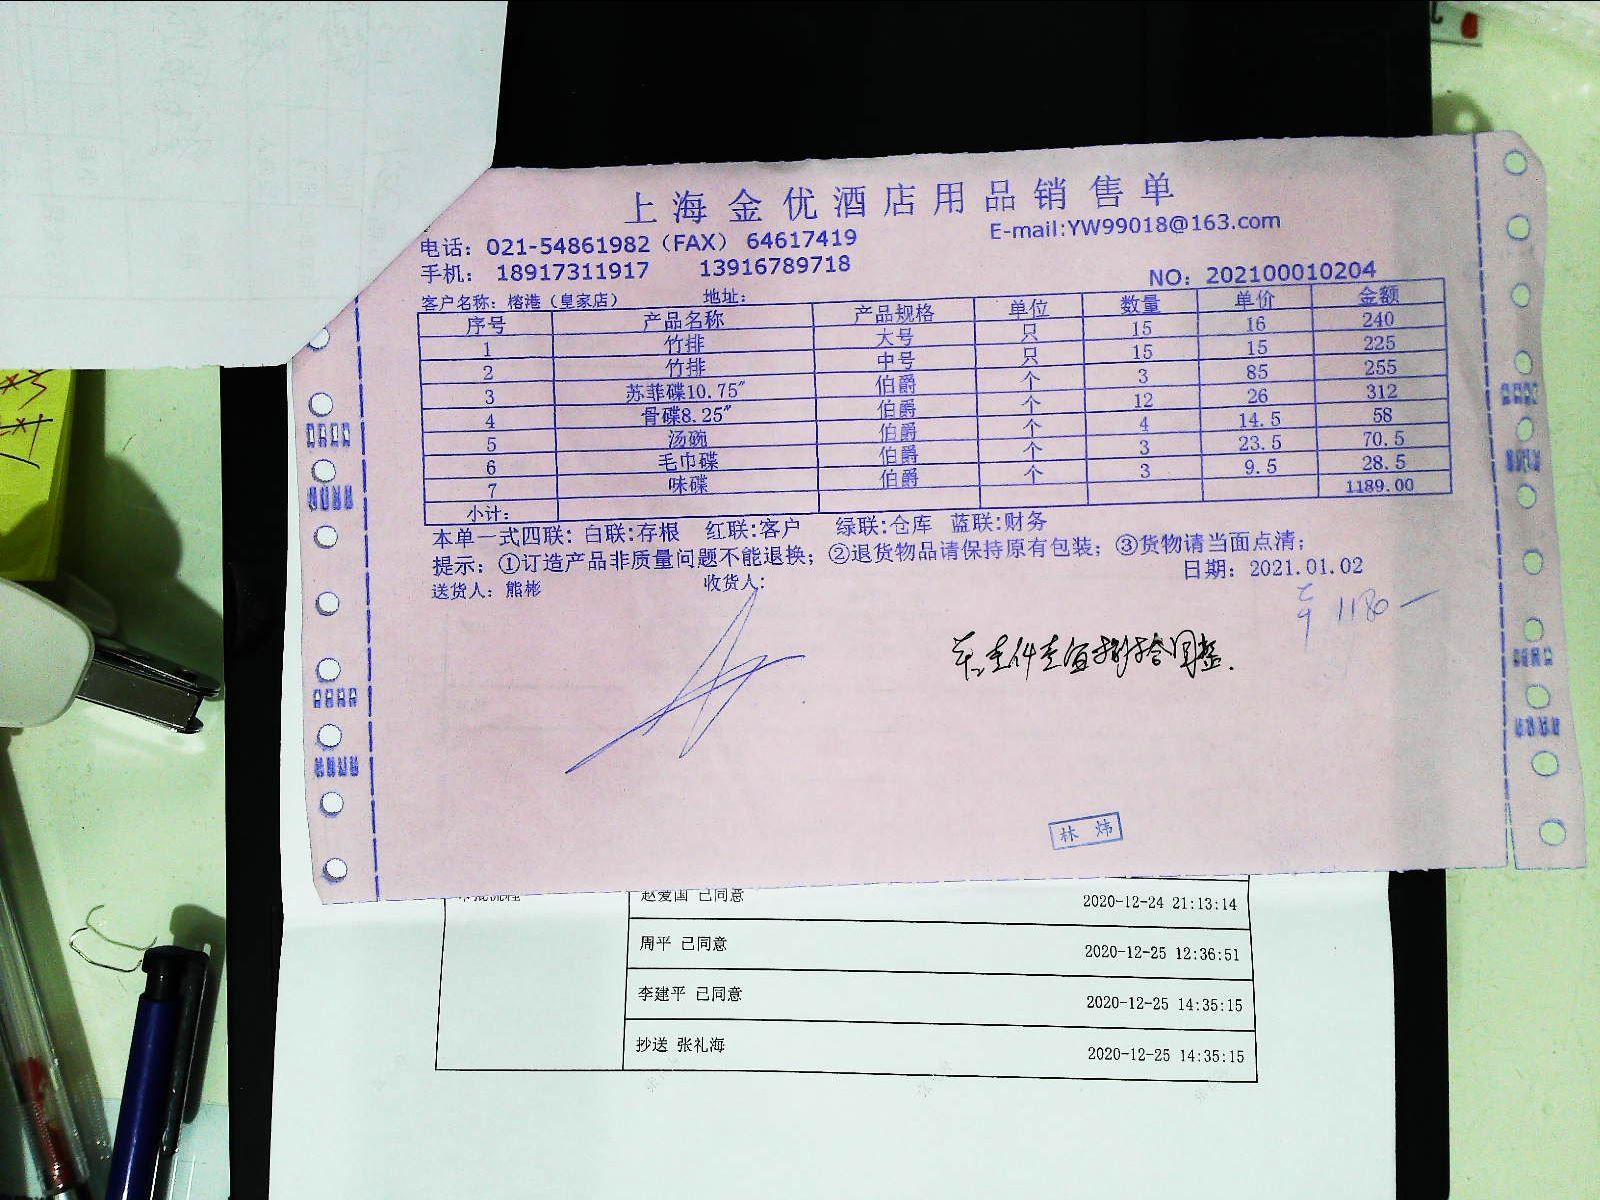 上海金优酒店用品销售单
电话：021-54861982（FAX） 64617419 E-mail:YW99018@163.com
手机： 18917311917 13916789718
NO：202100010204
客户名称：榕港（皇家店） 地址：
序号 产品名称 产品规格 单位 数量 单价 金额
1 竹排 大号 只 15 16 240
2 竹排 中号 只 15 15 225
3 苏菲碟10.75" 伯爵 个 3 85 255
4 骨碟8.25" 伯爵 个 12 26 312
5 汤碗 伯爵 个 4 14.5 58
6 毛巾碟 伯爵 个 3 23.5 70.5
7 味碟 伯爵 个 3 9.5 28.5
小计： 1189.00
本单一式四联：白联:存根 红联:客户 绿联:仓库 蓝联:财务
提示：①订造产品非质量问题不能退换；②退货物品请保持原有包装；③货物请当面点清；
日期：2021.01.02
送货人：熊彬 收货人：
1180—
壹仟壹佰捌拾圆整.
林炜
赵爱国 已同意 2020-12-24 21:13:14
周平 已同意 2020-12-25 12:36:51
李建平 已同意 2020-12-25 14:35:15
抄送 张礼海 2020-12-25 14:35:15